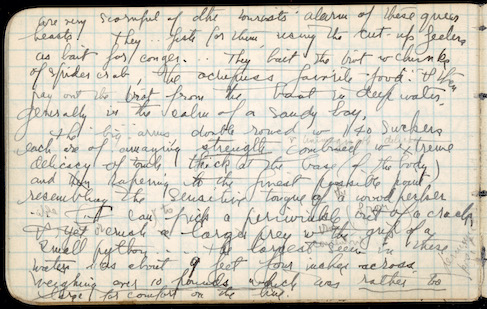 are very scornful of the tourists' alarm of these queer
beasts. They .. fish for them using the cut up feelers
as bait for conger ... They bait the line w chunks
of spider crab, the octopuses favorite food. & then
pay out the line from the boat in deep water,
generally in the calm of a sandy bay.
The big arms, double rowed w 1140 suckers
each are of amazing strength combined w extreme
delicacy of touch (thick at the base (of the body)
and tapering to the finest possible point
resembling the sensitive tongue of a woodpecker
It can pick a periwinkle out of a crack,
& yet crush a larger prey w the grip of a
small python ... The largest seen in these
waters was about 9 feet four inches across
weighing over 10 pounds which was rather too
large for comfort on the line.